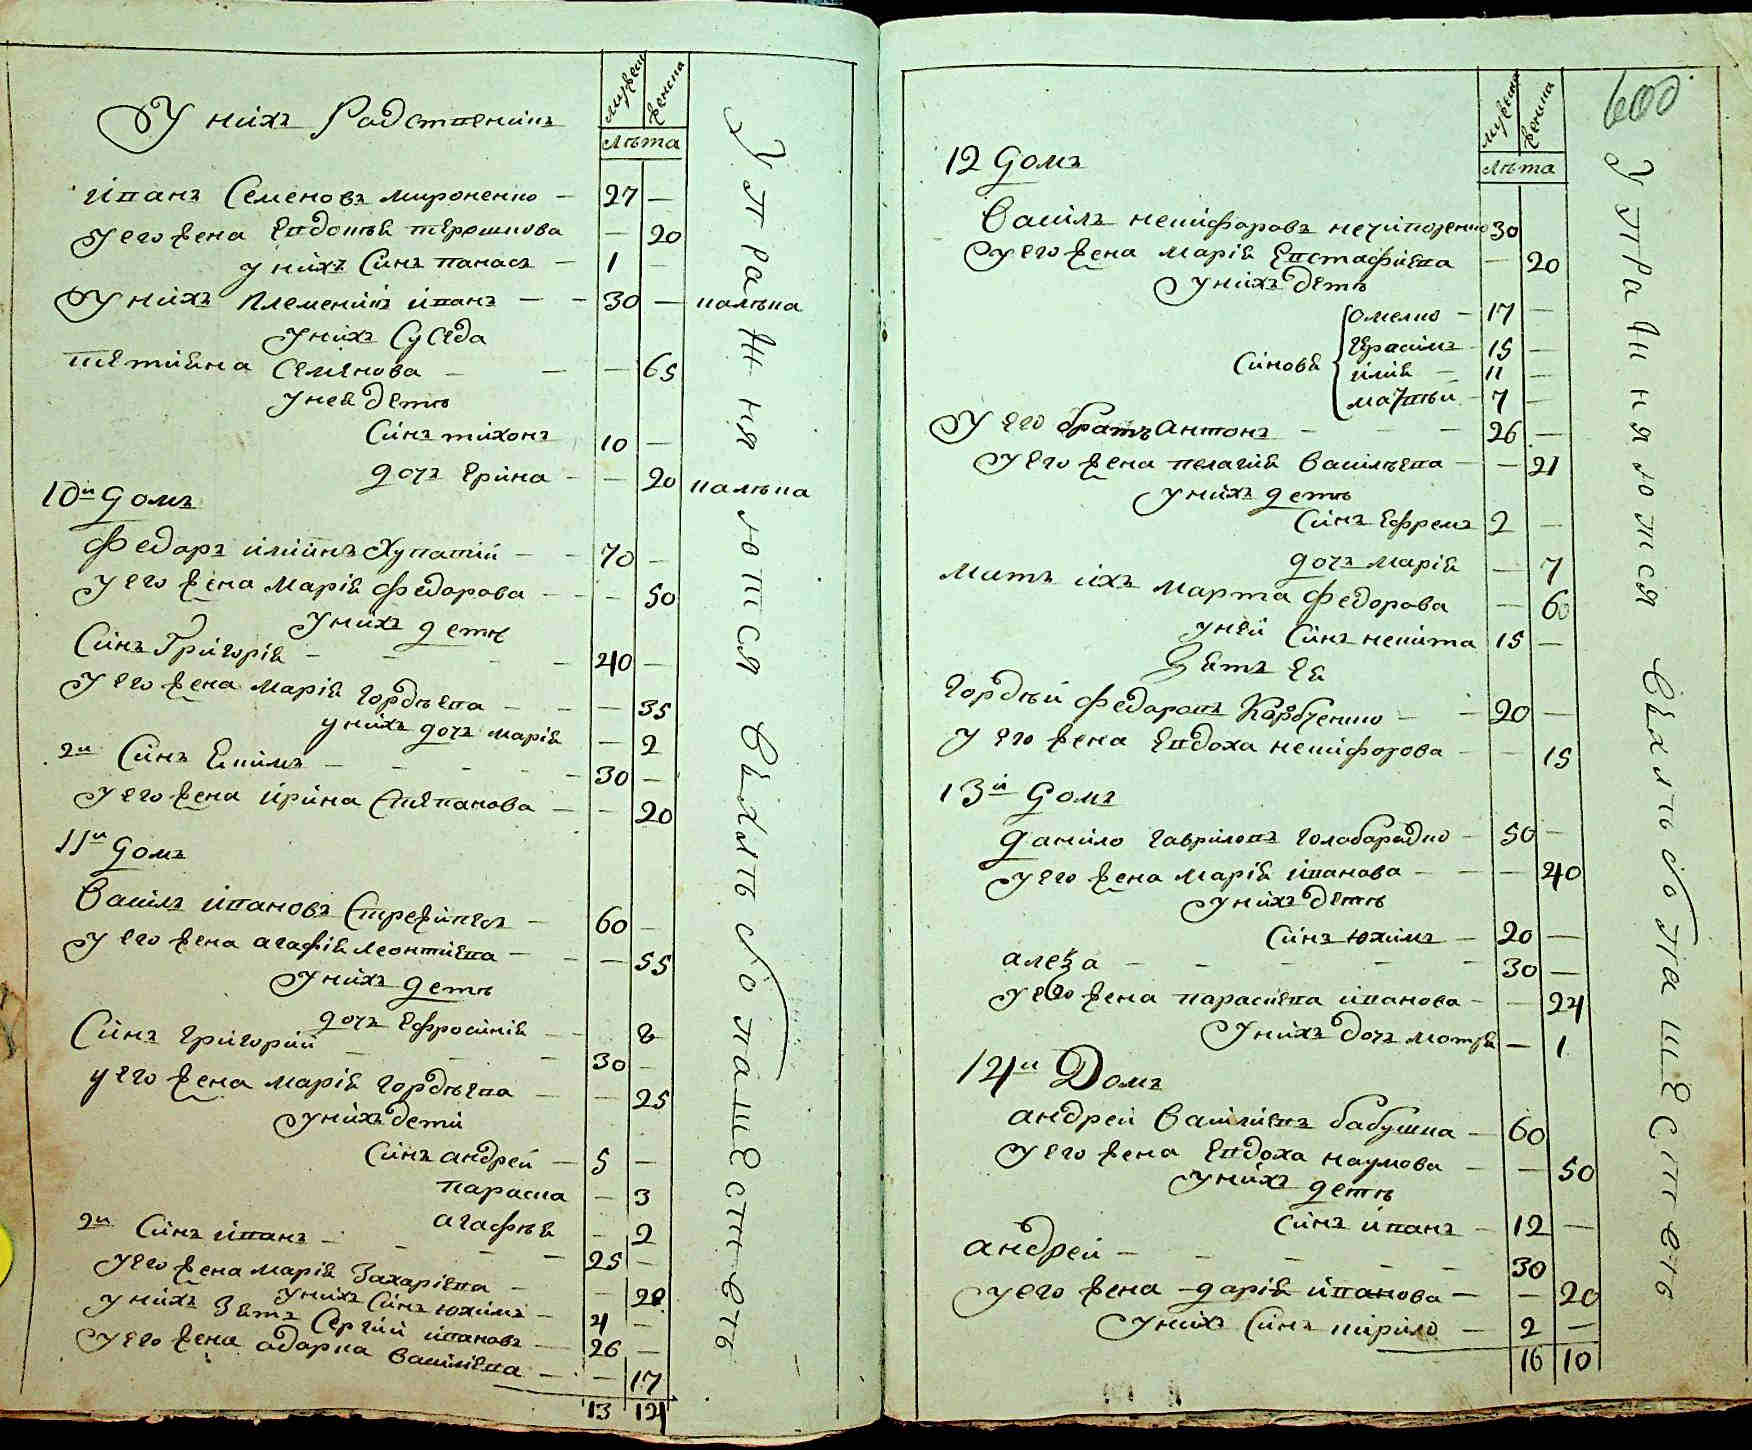 мужеск женска
лѣта
У нихъ Родственикъ
иванъ Семеновъ мироненко — 27 —
У его жена Евдокѣя терешкова — 20
у нихъ Синъ панасъ — 1 —
У нихъ племеникъ иванъ — — 30 — калѣка
У нихъ Суседа
тетияна Семенова — — — 65
У неей дети
Синъ тихонъ 10 —
дочъ Ерина — — 20 калѣка
10й домъ
Федоръ
У его жена Мария Федорова — — — 50
У нихъ дети
Синъ Григорій — — — 40 —
У его жена Марія гордѣева — — — 35
у нихъ дочъ марія — 2
2й Синъ Екимъ — — — — 30 —
У его жена ирина Степанова — — 20
11й домъ
Василъ ивановъ — 60 —
У его жена агафія леонтиева — — 55
У нихъ дети
дочъ Ефросинія — — 8
Синъ григорий — — — 30 —
у его жена марія гордѣева — — 25
У нихъ дети
Синъ андрей — 5 —
параска — 3
агафѣя — 2
2й Синъ иванъ — — — — 25 —
У его жена марія Захаріева — — 20
У нихъ Синъ юхимъ — 4 —
У нихъ Зять Сергій ивановъ — 26 —
У его жена одарка василиева — — 17
13 12
У пражняются въ хлѣбопашествѣ
600
мужеск женска
лѣта
12 домъ
Василъ никифоровъ нечипоренко 30
У его жена марія Евстафиева — 20
У нихъ дети
Синовя
омелко — 17 —
герасимъ — 15 —
илия — 11 —
матвѣй — 7 —
У его братъ антонъ — — — 26 —
У его жена пелагия василѣева — — 21
У нихъ дети
Синъ Ефремъ 2 —
дочъ марія — 7
мать ихъ марта Федорова — 60
у неей Синъ никита 15 —
Зять ея
гордѣй Федоровъ — — 20 —
У его жена Евдоха никифорова — — 15
13й домъ
данило гавриловъ голобородко — 50 —
У его жена марія иванова — — — 40
У нихъ дети
Синъ юхимъ — 20 —
алеѯа — — — — — 30 —
У его жена параскева иванова — — 24
У нихъ дочъ мотря — 1
14й Домъ
андрей Василиевъ бабушка — 60
У его жена Евдоха наумова — — 50
У нихъ дети
Синъ иванъ — 12 —
андрей — — — — — 30
У его жена дарія иванова — — 20
У нихъ Синъ кирило — 2 —
16 10
У пражняются въ хлѣбопашествѣ